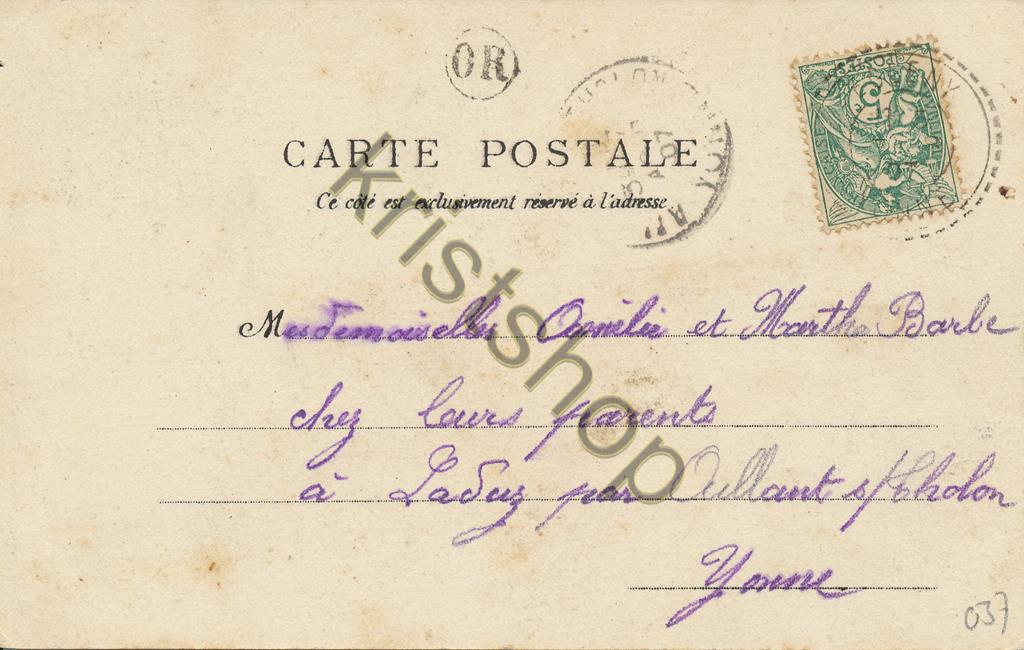 OR
CARTE POSTALE
Ce côté est exclusivement réservé à l'adresse
Mesdemoiselles Amélie et Marthe Barbe
chez leurs parents
à Laduz par Aillant s/Tholon
Yonne
037
POSTES
5
kristshop